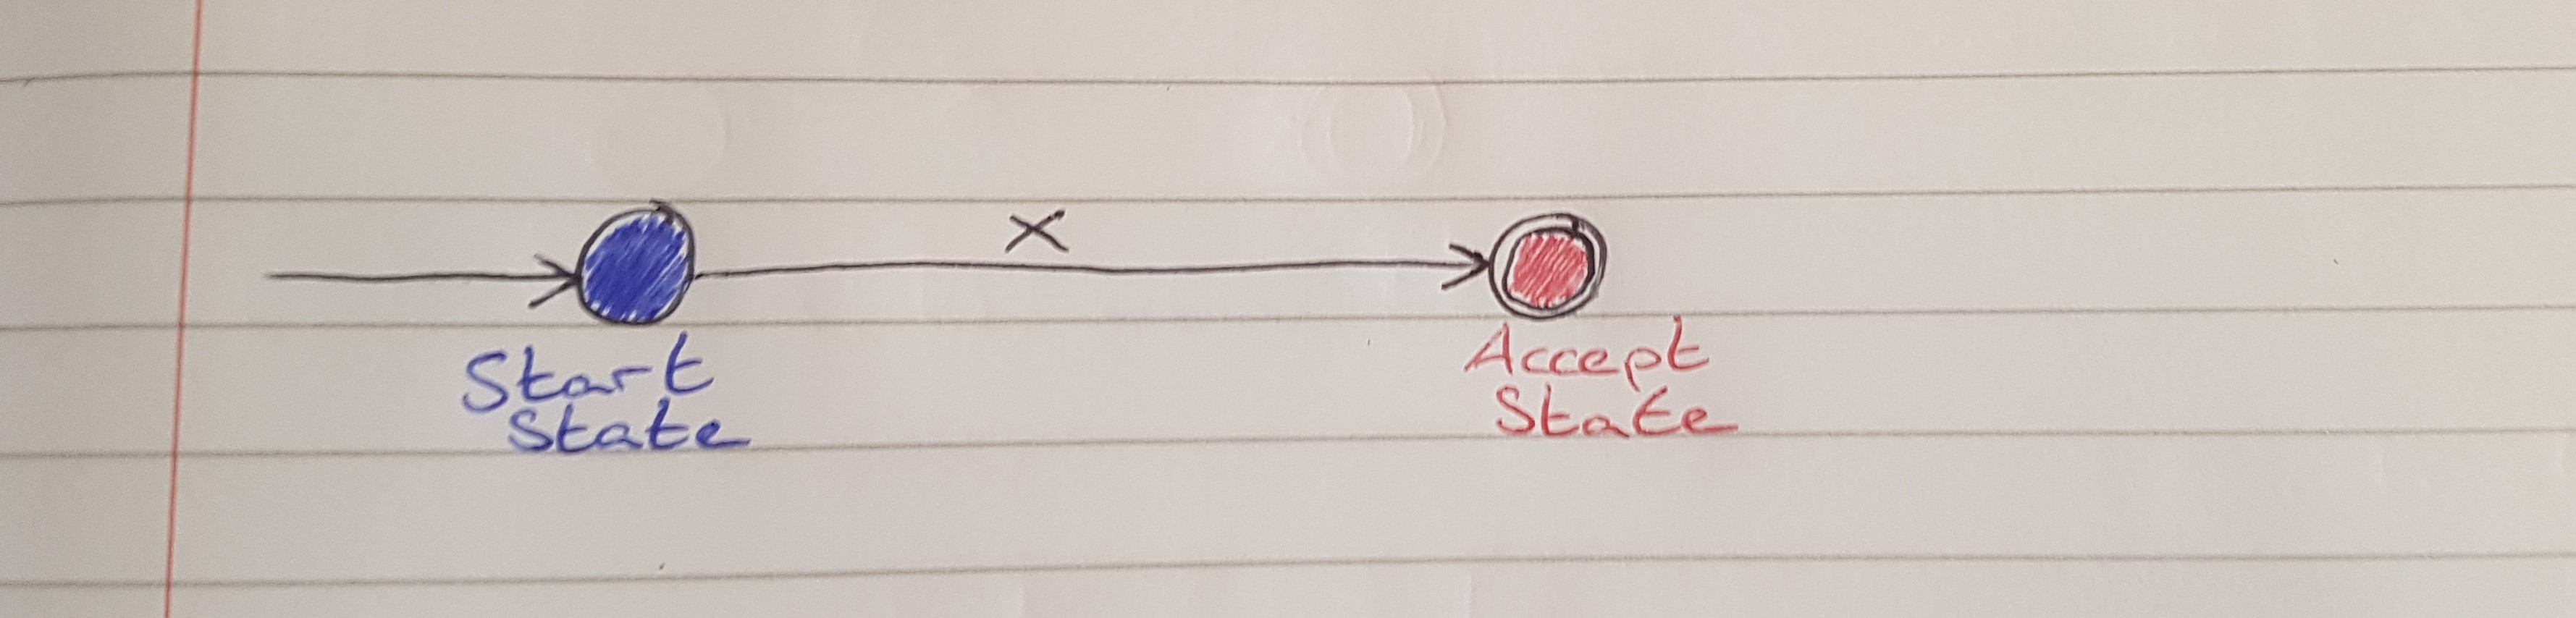 X
Start
State
Accept
State